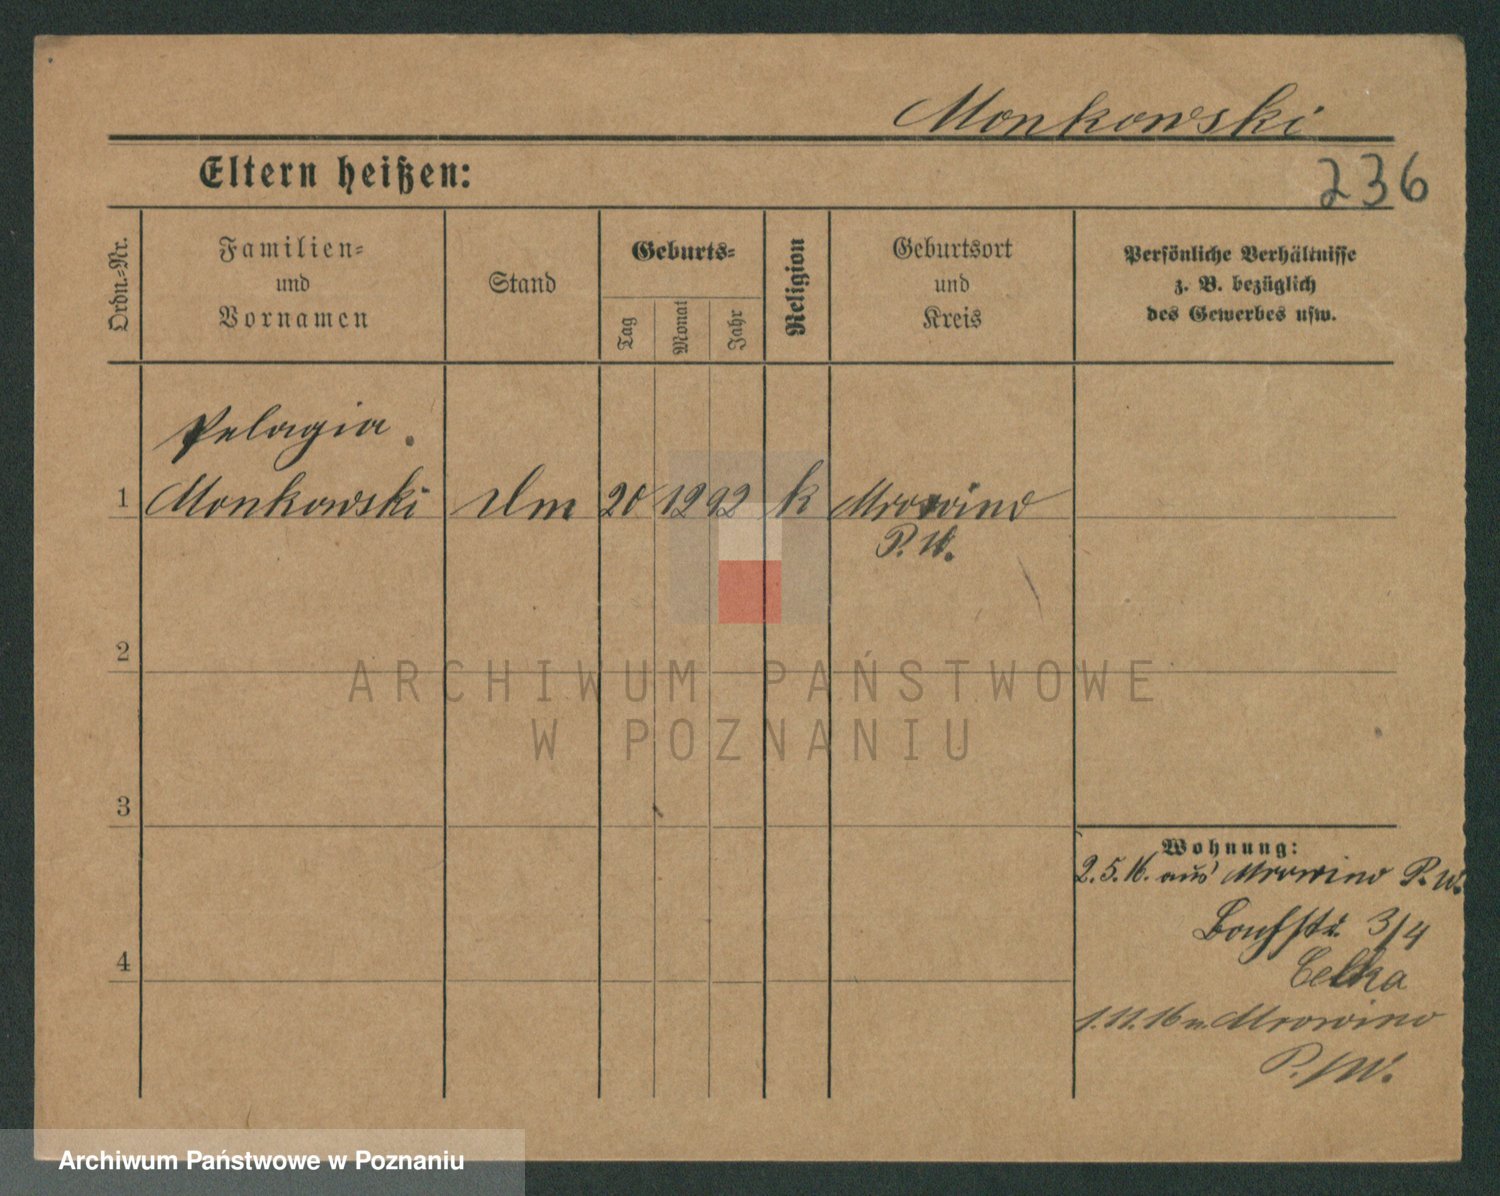 Monkowski
Eltern heißen:
236
Ordn.-Nr.
Familien-
und
Vornamen
Stand
Geburts-
Tag
Monat
Jahr
Religion
Geburtsort
und
Kreis
Persönliche Verhältnisse
z. B. bezüglich
des Gewerbes usw.
Pelagia.
1 Monkowski 20 12 92 k Mrowino
P. W.
2
ARCHIWUM PAŃSTWOWE
W POZNANIU
3
Wohnung:
2.5.16. aus Mrowino P. W.
3/4
4
Celka
1.11.16 n. Mrowino
P. W.
Archiwum Państwowe w Poznaniu